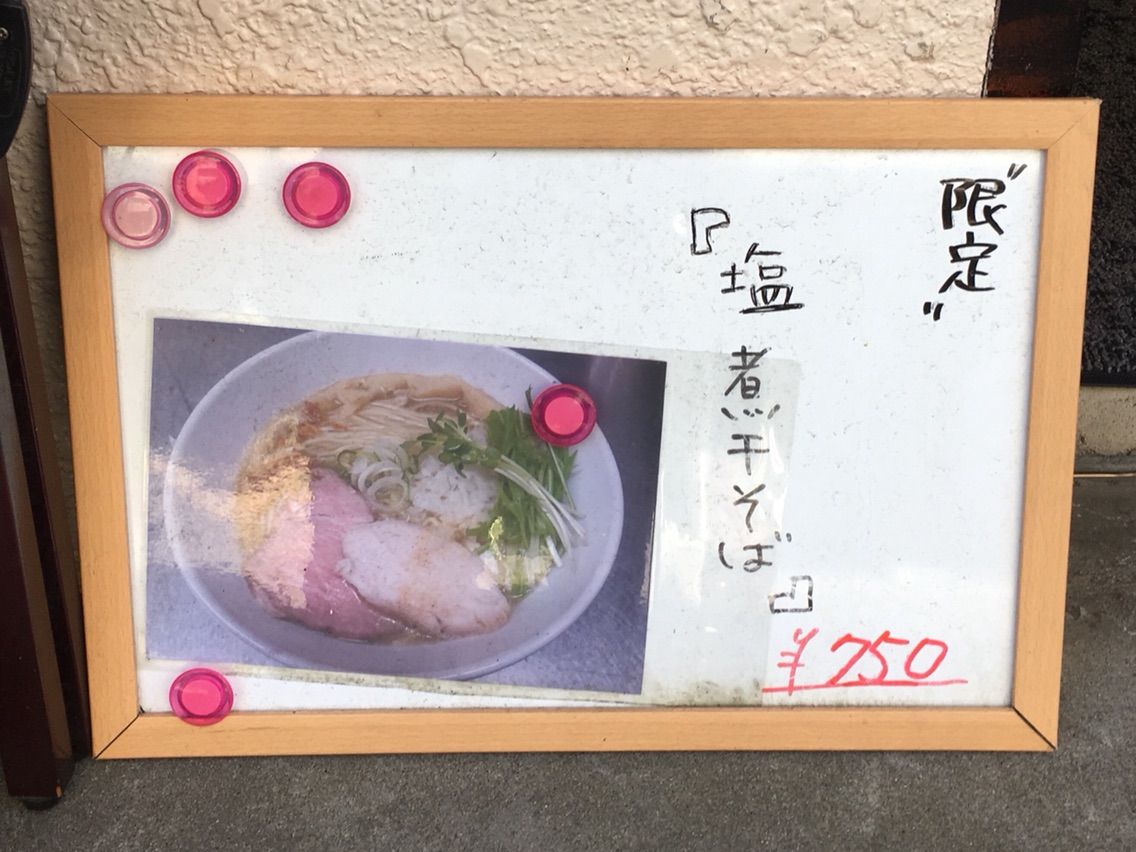 "限定"
『塩煮干そば』
¥750